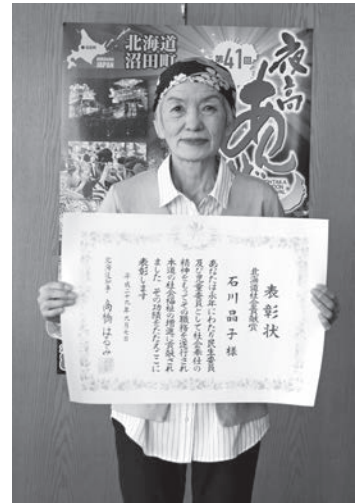 北海道
沼田町
第41回
夜高
あんどん
JAPAN
表彰状
北海道社会貢献賞
石川晶子様
あなたは永年にわたり民生委員
及び児童委員として社会奉仕の
精神をもってその職務を遂行され
本道の社会福祉の増進に貢献され
ました その功績をたたえここに
表彰します
平成二十九年九月七日
北海道知事 高橋はるみ